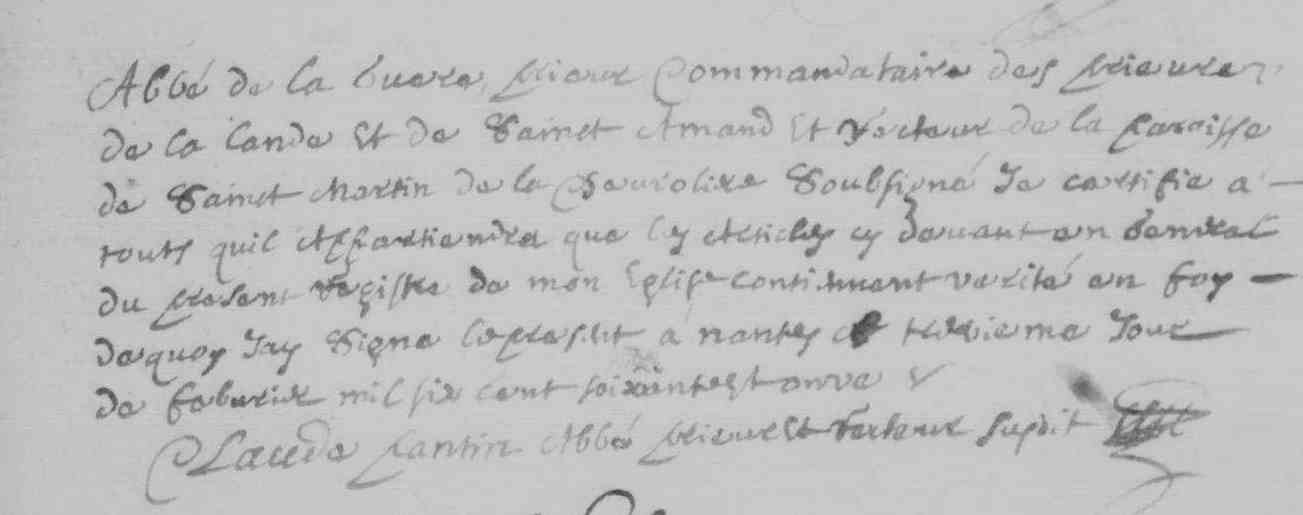 Abbé de la Guere, prieur Commandataire des prieurez
de la lande Et de Sainct Amand Et Recteur de la paroisse
de Sainct Martin de la Chevroliere Soubsigné Je certifie a
touts quil Appartiendra que les Articles cy devant en
du present Registre de mon Eglise contiennent verité en foy
de quoy Jay Signe le presant a nantes ce treiziéme Jour
de febvrier mil six cent soixante et onze
Claude pantin Abbé prieur Et Recteur susdit